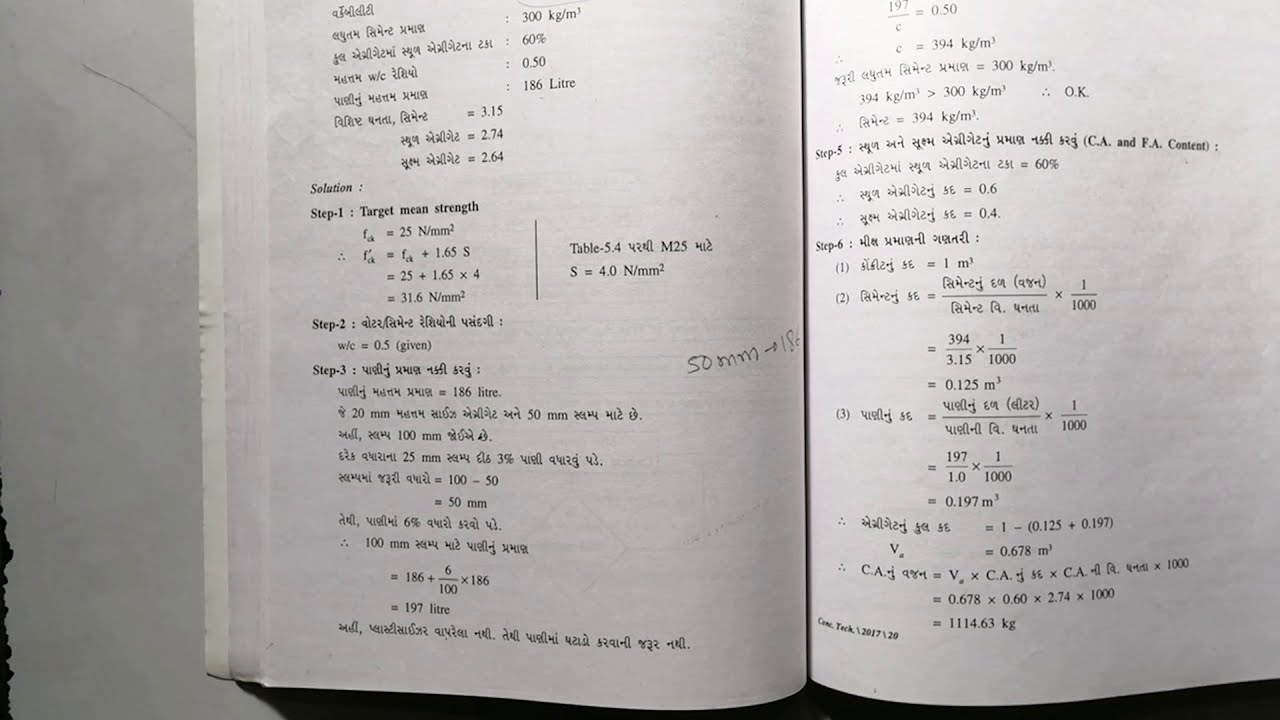 વર્કેબીલીટી
લઘુતમ સિમેન્ટ પ્રમાણ : 300 kg/m³
કુલ એગ્રીગેટમાં સ્થૂળ એગ્રીગેટના ટકા : 60%
મહત્તમ w/c રેશિયો : 0.50
પાણીનું મહત્તમ પ્રમાણ : 186 Litre
વિશિષ્ટ ઘનતા, સિમેન્ટ = 3.15
સ્થૂળ એગ્રીગેટ = 2.74
સૂક્ષ્મ એગ્રીગેટ = 2.64
Solution :
Step-1 : Target mean strength
f_ck = 25 N/mm²
∴ f'_ck = f_ck + 1.65 S
= 25 + 1.65 × 4
= 31.6 N/mm²
Table-5.4 પરથી M25 માટે
S = 4.0 N/mm²
Step-2 : વોટર/સિમેન્ટ રેશિયોની પસંદગી :
w/c = 0.5 (given)
Step-3 : પાણીનું પ્રમાણ નક્કી કરવું :
પાણીનું મહત્તમ પ્રમાણ = 186 litre.
જે 20 mm મહત્તમ સાઈઝ એગ્રીગેટ અને 50 mm સ્લમ્પ માટે છે.
અહીં, સ્લમ્પ 100 mm જોઈએ છે.
દરેક વધારાના 25 mm સ્લમ્પ દીઠ 3% પાણી વધારવું પડે.
સ્લમ્પમાં જરૂરી વધારો = 100 – 50
= 50 mm
તેથી, પાણીમાં 6% વધારો કરવો પડે.
∴ 100 mm સ્લમ્પ માટે પાણીનું પ્રમાણ
= 186 + 6/100 × 186
= 197 litre
અહીં, પ્લાસ્ટીસાઈઝર વાપરેલા નથી. તેથી પાણીમાં ઘટાડો કરવાની જરૂર નથી.
50mm → 186
197/c = 0.50
∴ c = 394 kg/m³
જરૂરી લઘુતમ સિમેન્ટ પ્રમાણ = 300 kg/m³.
394 kg/m³ > 300 kg/m³ ∴ O.K.
∴ સિમેન્ટ = 394 kg/m³.
Step-5 : સ્થૂળ અને સૂક્ષ્મ એગ્રીગેટનું પ્રમાણ નક્કી કરવું (C.A. and F.A. Content) :
કુલ એગ્રીગેટમાં સ્થૂળ એગ્રીગેટના ટકા = 60%
∴ સ્થૂળ એગ્રીગેટનું કદ = 0.6
∴ સૂક્ષ્મ એગ્રીગેટનું કદ = 0.4.
Step-6 : મીક્ષ પ્રમાણની ગણતરી :
(1) કોંક્રીટનું કદ = 1 m³
(2) સિમેન્ટનું કદ = સિમેન્ટનું દળ (વજન)/સિમેન્ટ વિ. ઘનતા × 1/1000
= 394/3.15 × 1/1000
= 0.125 m³
(3) પાણીનું કદ = પાણીનું દળ (લીટર)/પાણીની વિ. ઘનતા × 1/1000
= 197/1.0 × 1/1000
= 0.197 m³
∴ એગ્રીગેટનું કુલ કદ = 1 – (0.125 + 0.197)
V_a = 0.678 m³
∴ C.A.નું વજન = V_a × C.A. નું કદ × C.A. ની વિ. ઘનતા × 1000
= 0.678 × 0.60 × 2.74 × 1000
= 1114.63 kg
Conc. Tech.\2017\20